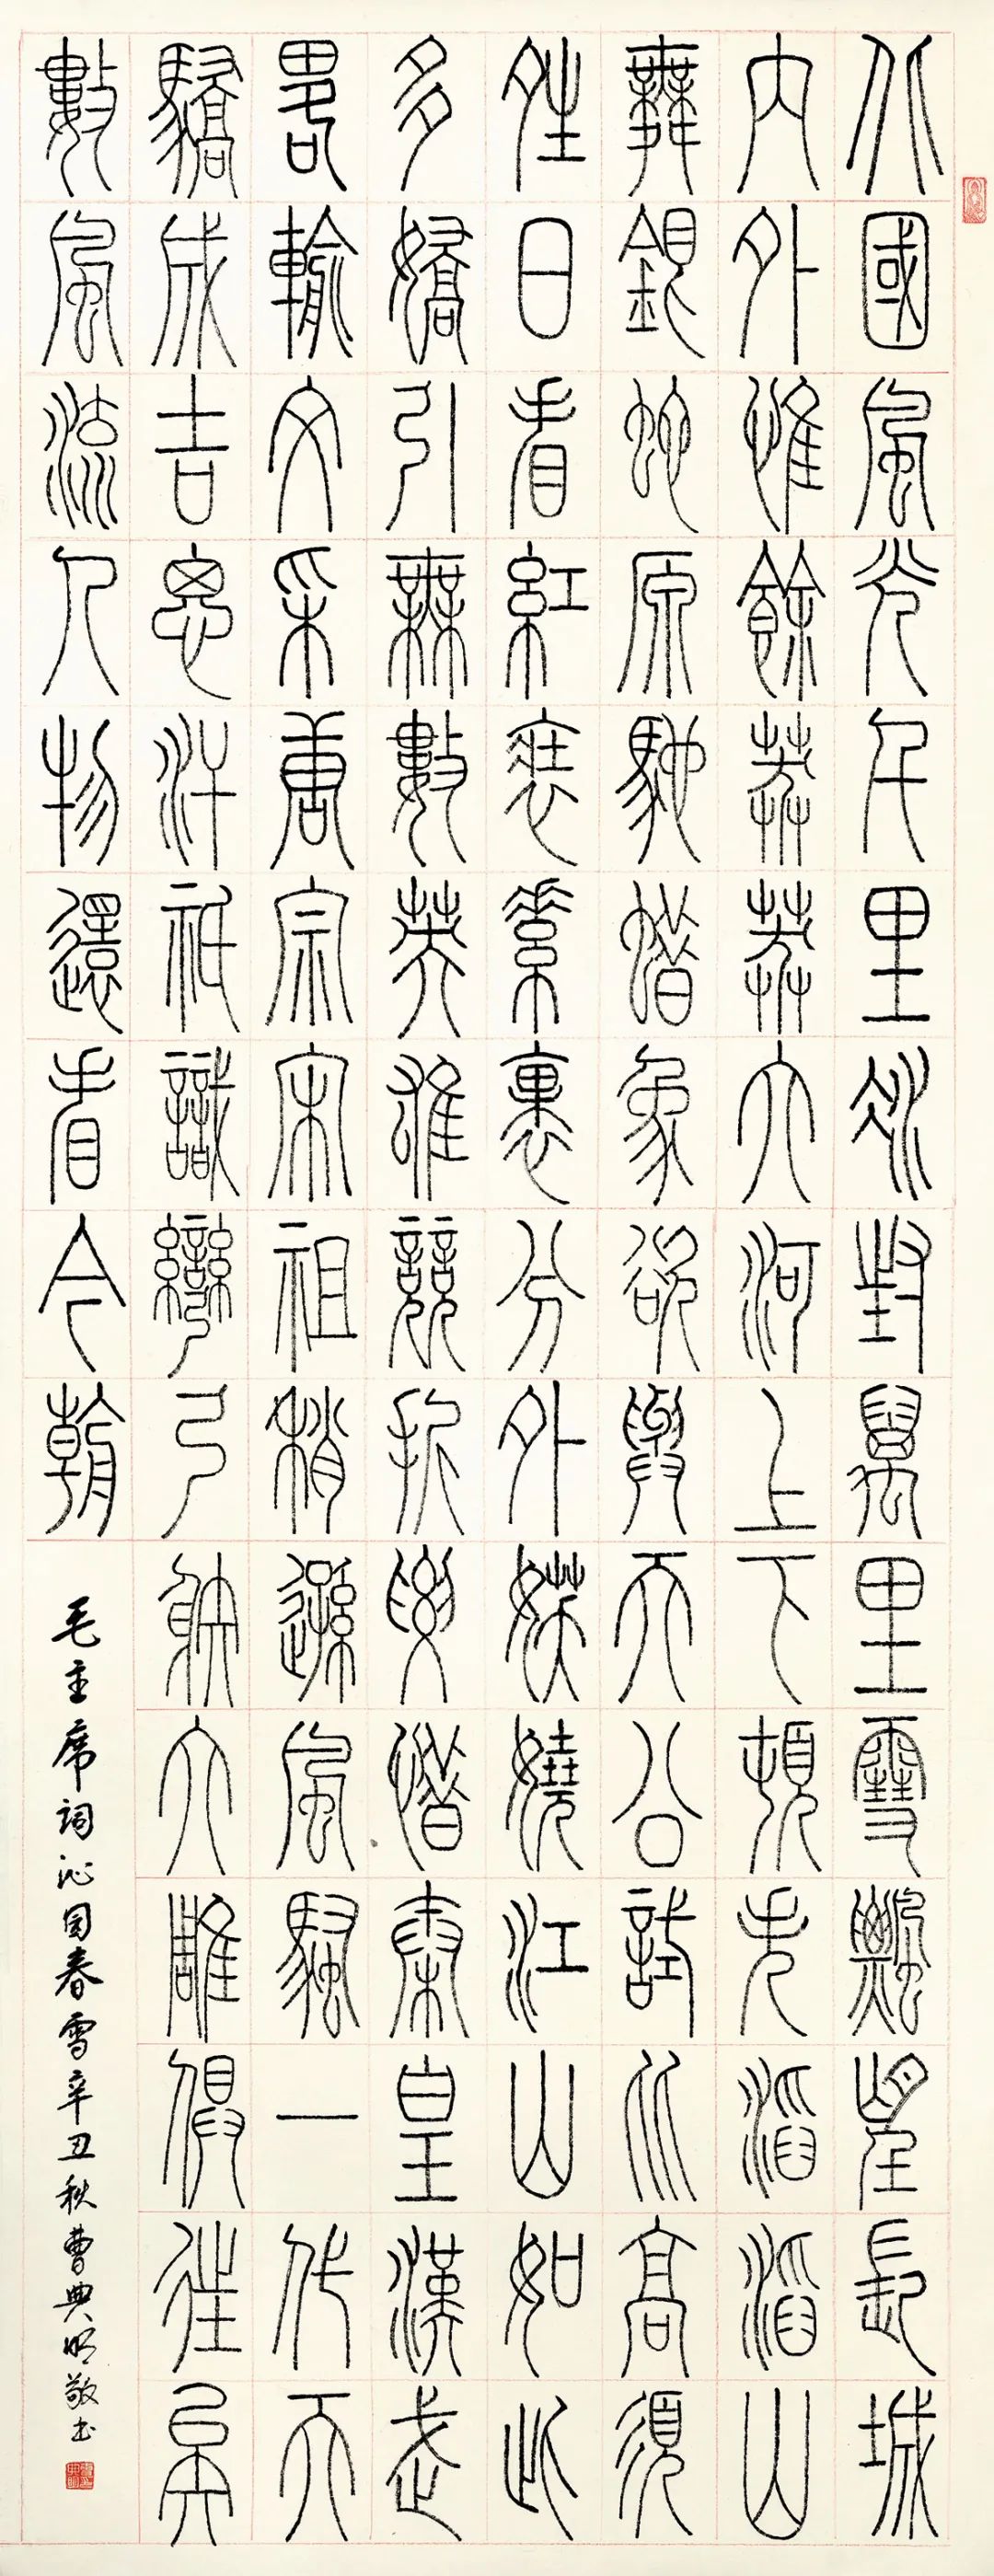 北國風光千里冰封萬里雪飄望長城
内外惟餘莽莽大河上下頓失滔滔山
舞銀蛇原馳蜡象欲與天公試比高須
夝日看紅裝素裹分外妖嬈江山如此
多嬌引無數英雄競折要惜秦皇漢武
畧輸文采唐宗宋祖稍遜風騷一代天
驕成吉思汗祇識彎弓射大雕俱往矣
數風流人物還看今朝
毛主席词沁园春雪辛丑秋曹典明敬书